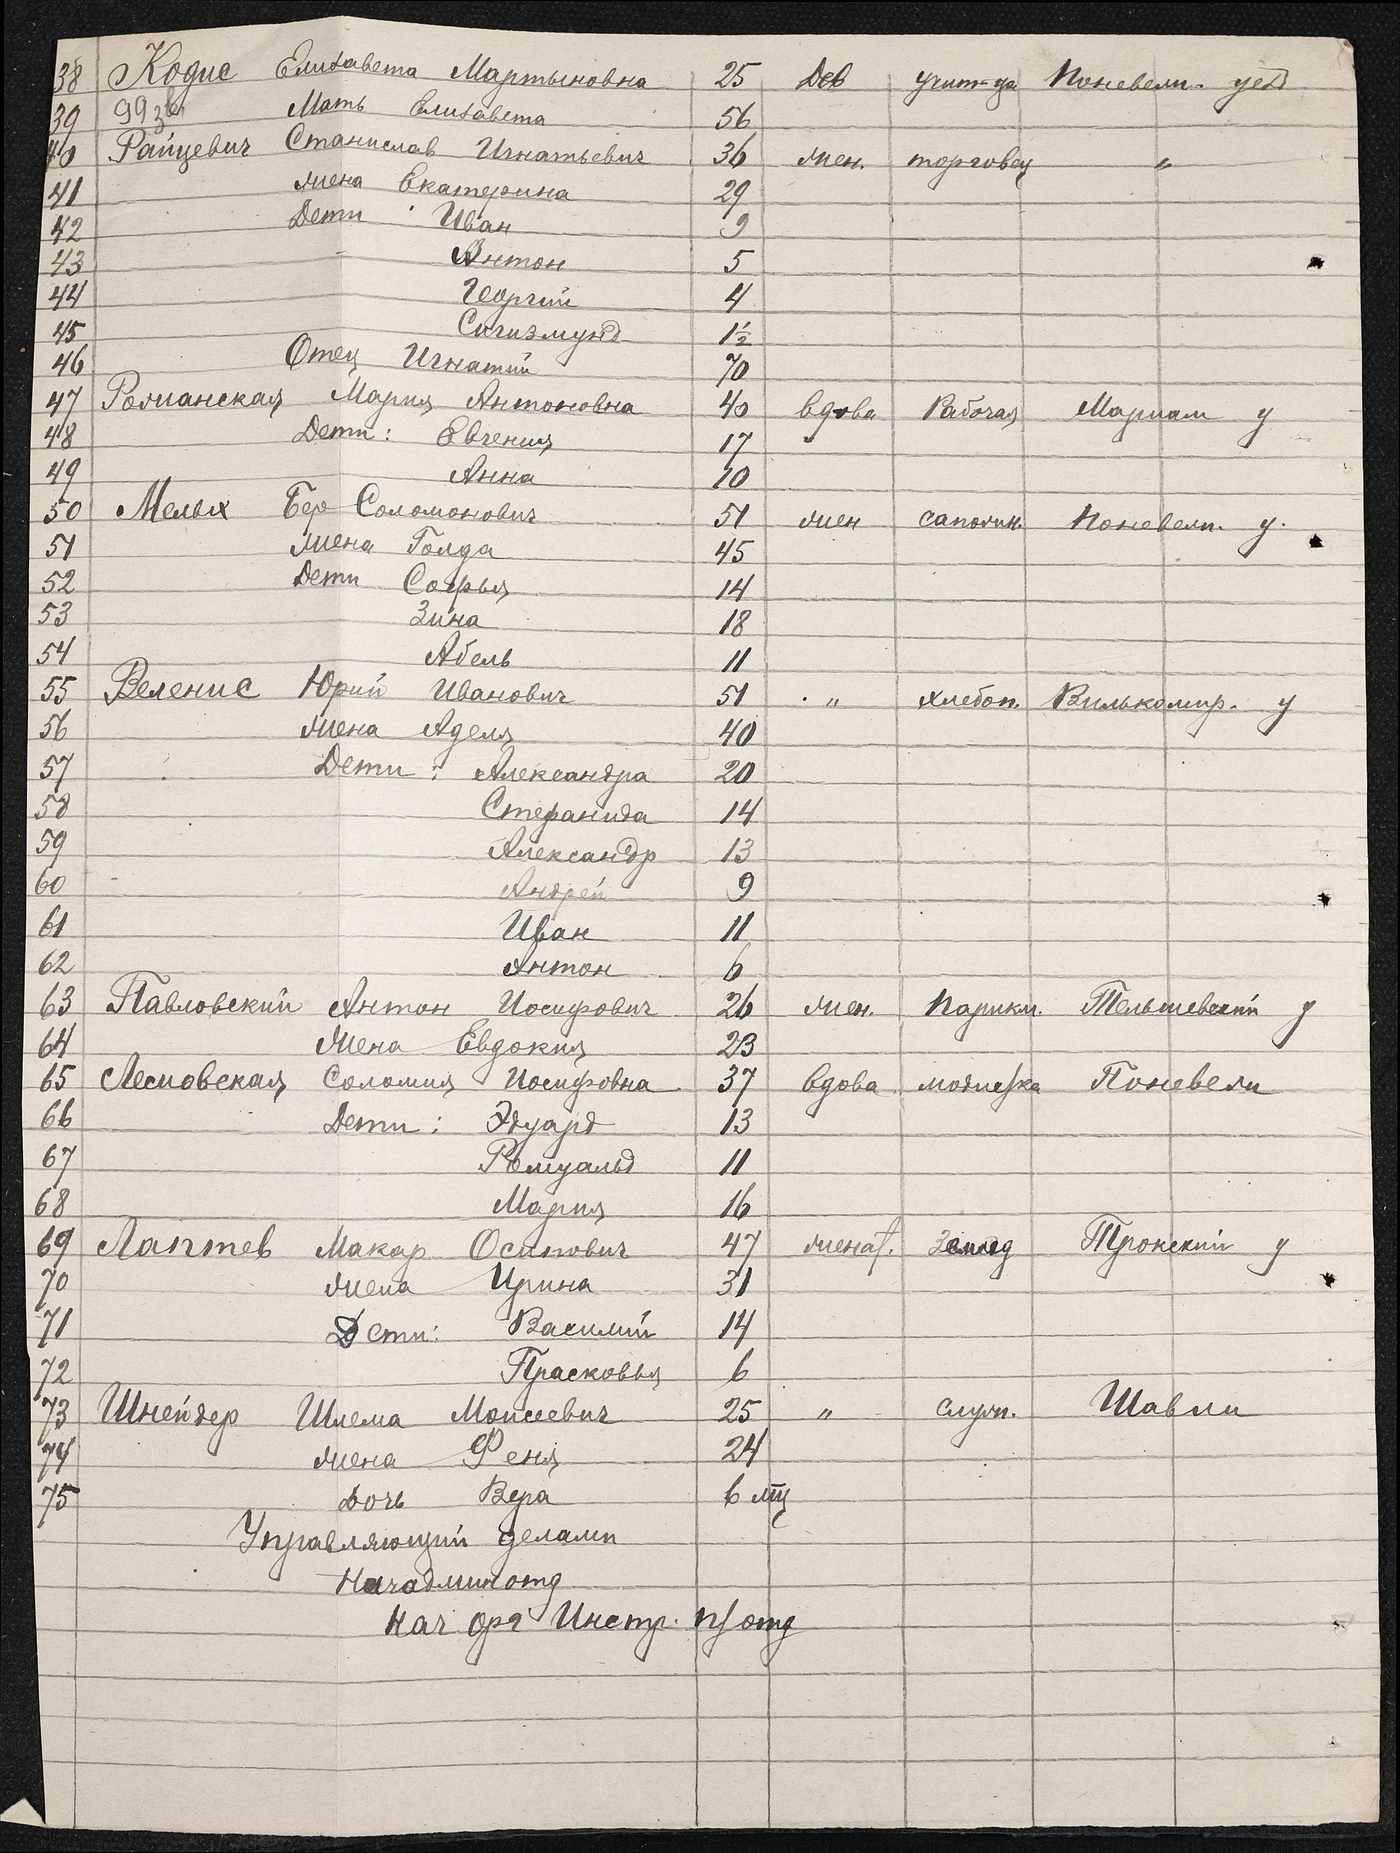 38 Кодис Елизавета Мартыновна 25 Дев учит-ца Поневеж. уезд
39 Мать Елизавета 56
40 Райцевич Станислав Игнатьевич 36 жен. торговец "
41 жена Екатерина 29
42 Дети Иван 9
43 Антон 5
44 Георгий 4
45 Сигизмунд 1½
46 Отец Игнатий 70
47 Романская Мария Антоновна 40 вдова Рабочая Мариам у
48 Дети: Евгения 17
49 Анна 10
50 Бер Соломонович 51 жен сапожн. Поневеж. у.
51 жена Голда 45
52 Дети Софья 14
53 Зина 18
54 Абель 11
55 Веленис Юрий Иванович 51 " хлебоп. Вилькомир. у
56 жена Аделя 40
57 Дети: Александра 20
58 Стефанида 14
59 Александр 13
60 Андрей 9
61 Иван 11
62 Антон 6
63 Павловский Антон Иосифович 26 жен. Парикм. Тельшевский у
64 Жена Евдокия 23
65 Соломия Иосифовна 37 вдова модистка Поневеж
66 Дети: Эдуард 13
67 Ромуальд 11
68 Мария 16
69 Лаптев Макар Осипович 47 женат. ТроКский у
70 жена Ирина 31
71 Дети: Василий 14
72 Прасковья 6
73 Шнейдер Шлема Моисеевич 25 " служ. Шавли
74 жена Феня 24
75 дочь Вера 6 мц
Управляющий делами
Начадминотд
Нач орг Инстр. п/отд